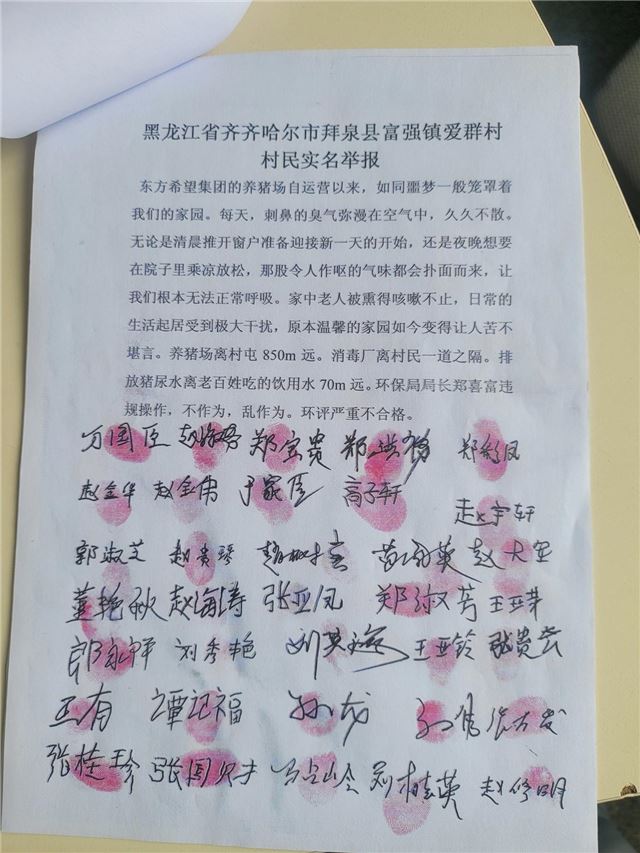 黑龙江省齐齐哈尔市拜泉县富强镇爱群村
村民实名举报
东方希望集团的养猪场自运营以来，如同噩梦一般笼罩着
我们的家园。每天，刺鼻的臭气弥漫在空气中，久久不散。
无论是清晨推开窗户准备迎接新一天的开始，还是夜晚想要
在院子里乘凉放松，那股令人作呕的气味都会扑面而来，让
我们根本无法正常呼吸。家中老人被熏得咳嗽不止，日常的
生活起居受到极大干扰，原本温馨的家园如今变得让人苦不
堪言。养猪场离村屯 850m 远。消毒厂离村民一道之隔。排
放猪尿水离老百姓吃的饮用水 70m 远。环保局局长郑喜富违
规操作，不作为，乱作为。环评严重不合格。
万国臣 郑宝贵
赵金华 于家臣 高子轩
赵宇轩
郭淑芝
董艳秋 赵海涛 张亚凤 郑淑芳
刘秀艳 王亚铃 张贵芸
谭记福 孙龙
张桂珍 刘桂英 赵修明